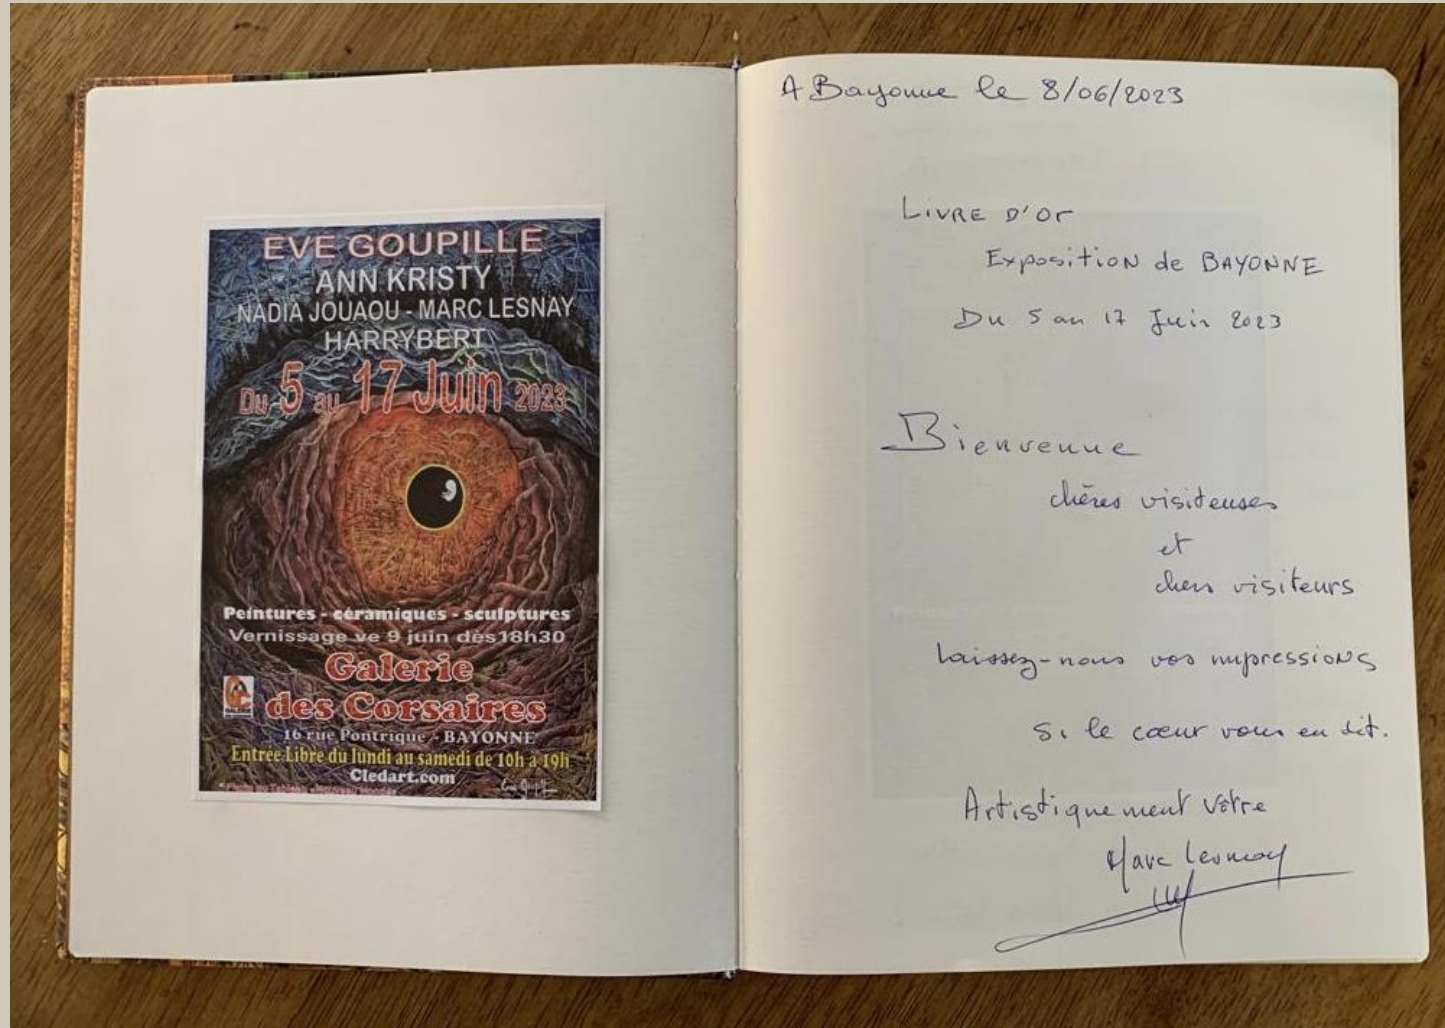 EVE GOUPILLE
ANN KRISTY
NADIA JOUAOU - MARC LESNAY
HARRYBERT
Du 5 au 17 Juin 2023
Peintures - céramiques - sculptures
Vernissage ve 9 juin dès 18h30
Galerie
des Corsaires
16 rue Pontrique - BAYONNE
Entrée Libre du lundi au samedi de 10h à 19h
Cledart.com
A Bayonne le 8/06/2023
LIVRE D'Or
Exposition de BAYONNE
Du 5 au 17 Juin 2023
Bienvenue
chères visiteuses
et
chers visiteurs
Laissez-nous vos impressions
Si le cœur vous en dit.
Artistiquement vôtre
Marc Lesnay